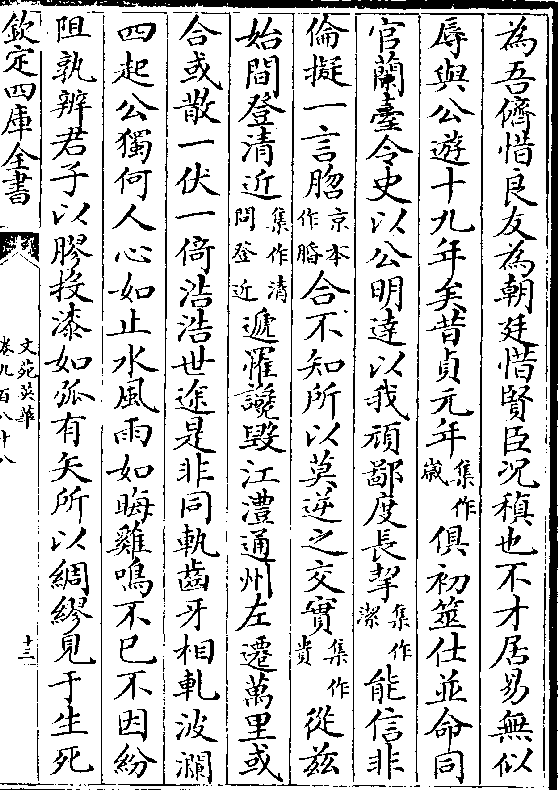 為吾儕惜良友為朝廷惜賢臣况稹也不才居易無似
辱與公遊十九年矣昔貞元年集作歲俱初筮仕並命同
官蘭臺令史以公明達以我頑鄙度長挈集作潔能信非
倫擬一言脗京本作合不知所以莫逆之交實集作貴從兹
始間登清近集作清問登近遞罹讒毀江澧通州左遷萬里或
合或散一伏一倚浩浩世途是非同軌齒牙相軋波瀾
四起公獨何人心如止水風雨如晦雞鳴不已不因紛
阻孰辨君子以膠投漆如弧有矢所以綢繆見于生死
欽定四庫全書
文苑英華
卷九百八十八
十三